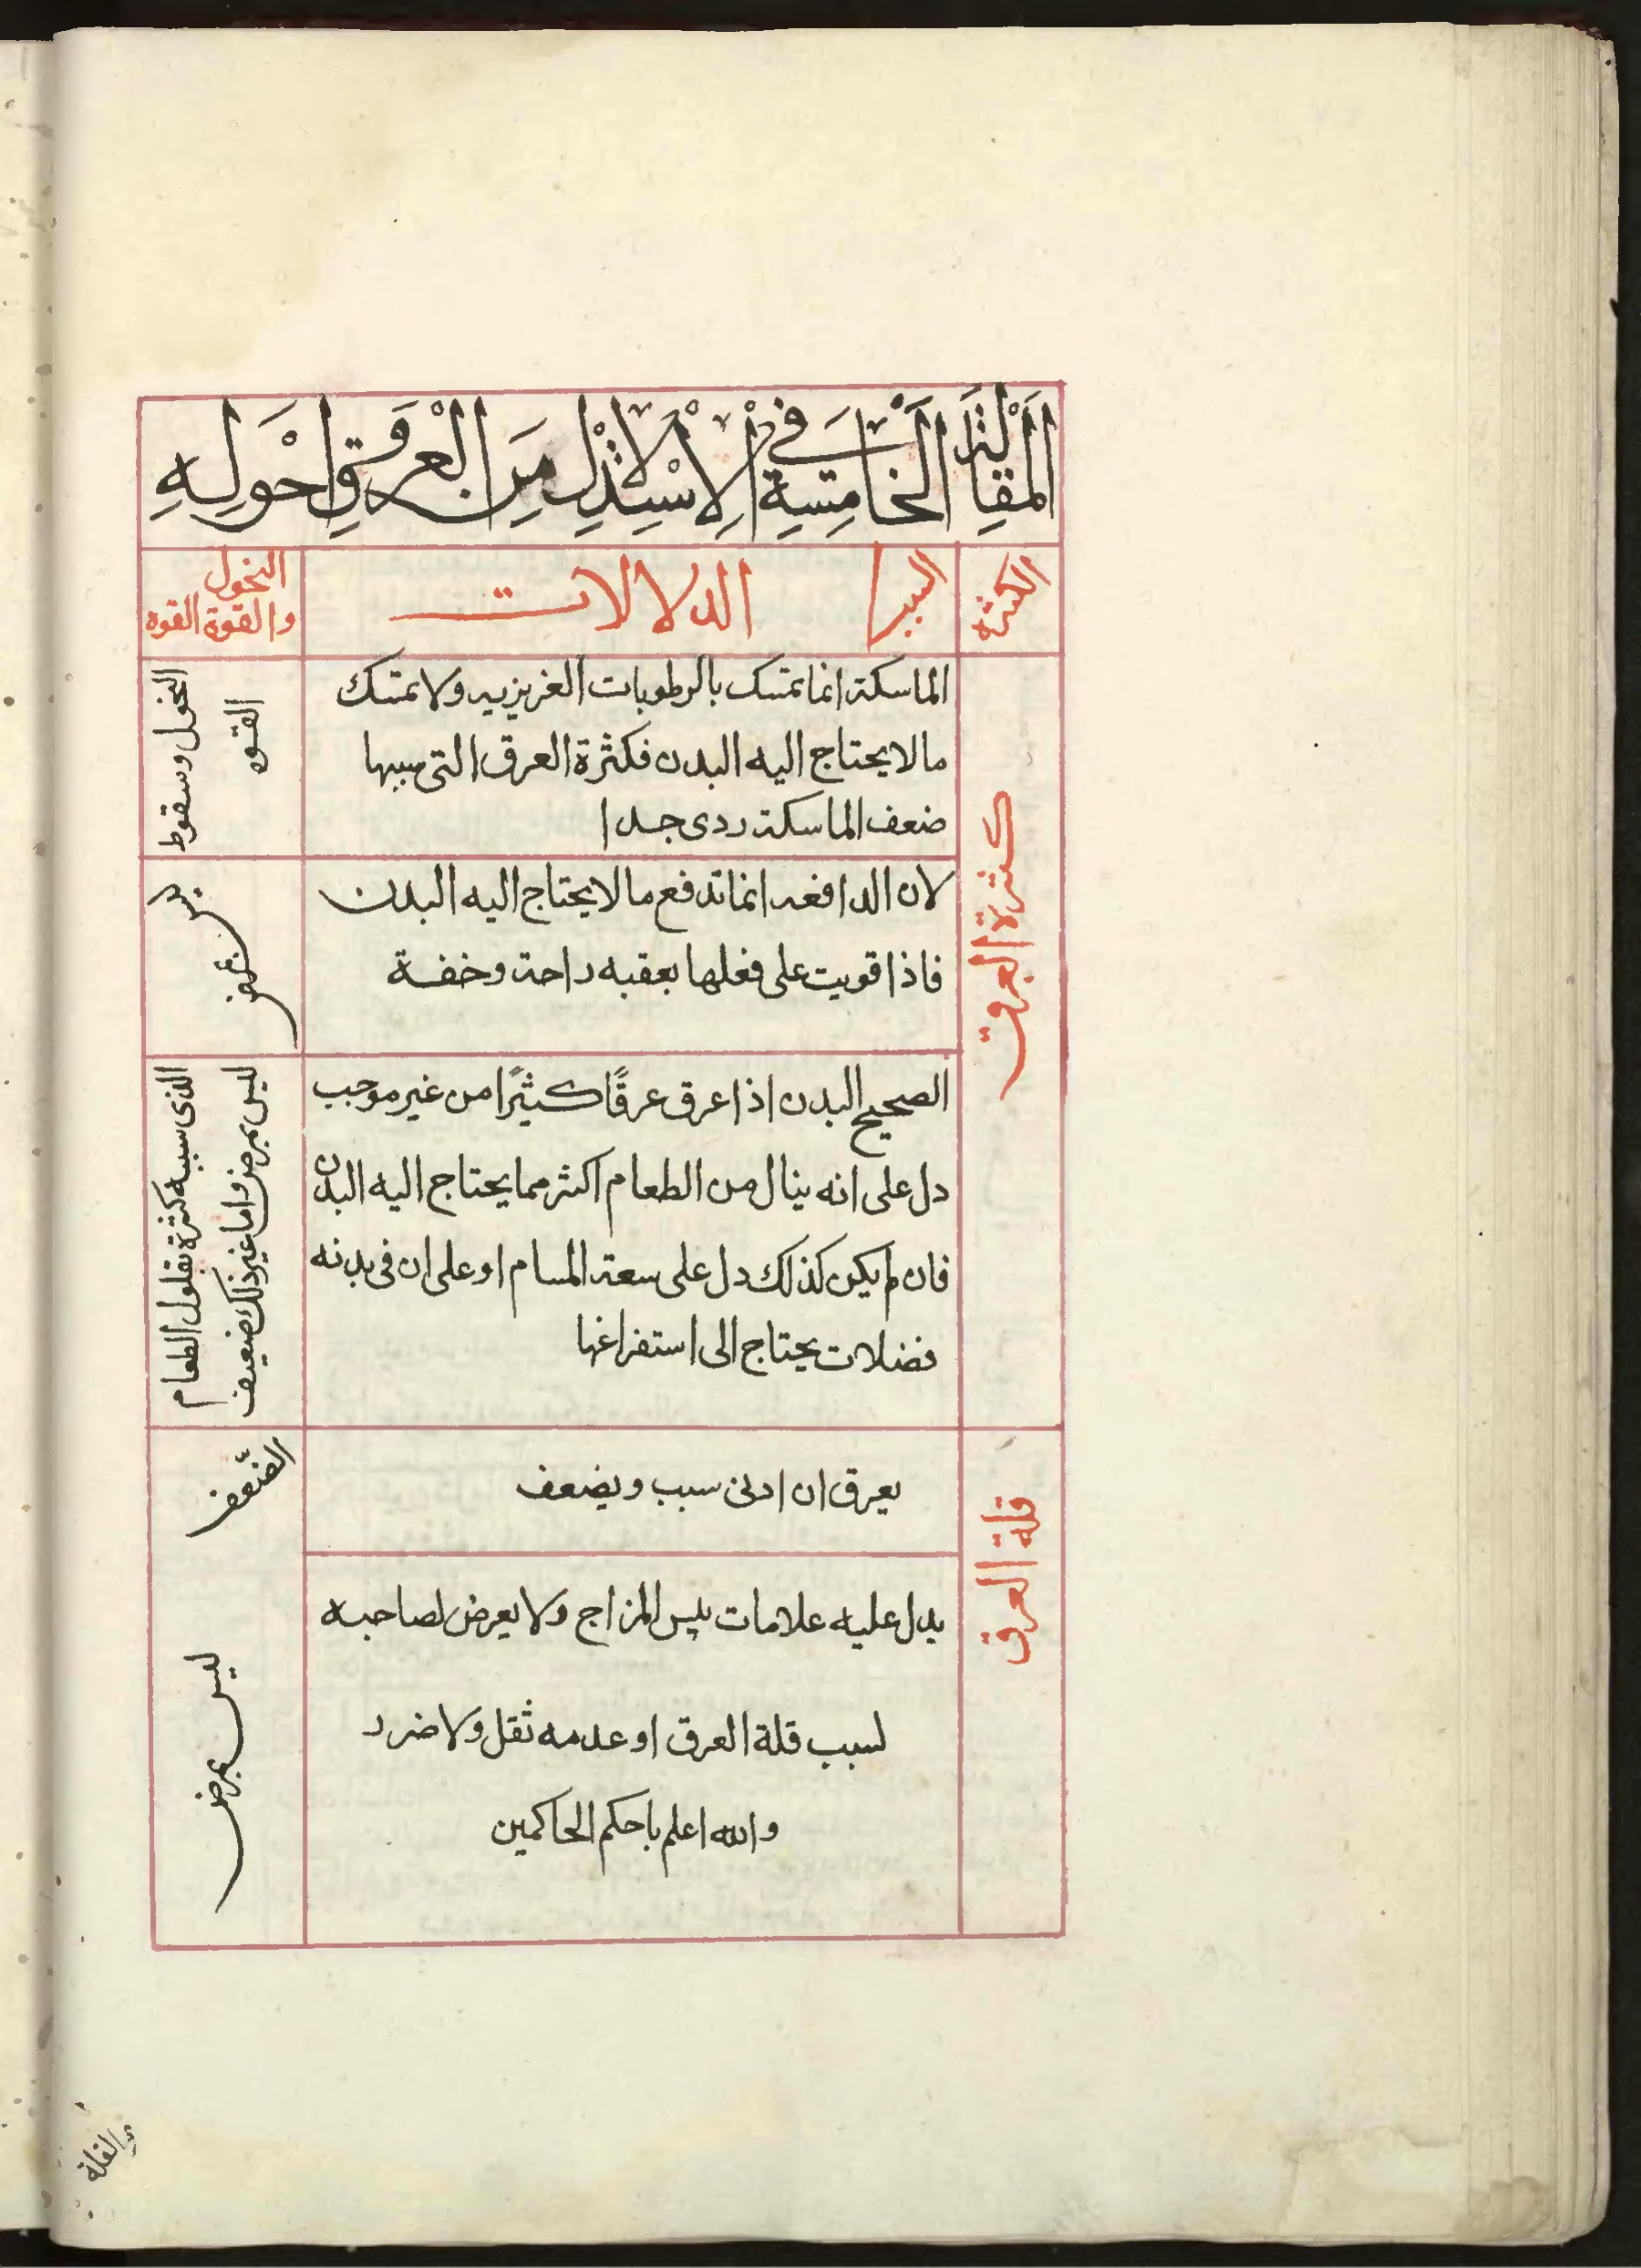 المقالة الخامسة في الاستدلال من العرق واحوله
الكثره
الدلالات
النحول
والقوة القوة
كثرة العرق
الماسكة انما تمسك بالرطوبات الغريزيه ولا تمسك
ما لا يحتاج اليه البدن فكثرة العرق التى سببها
ضعف الماسكة ردى جدا
النحول وسقوط
القوه
لان الدافعه انما تدفع ما لا يحتاج اليه البدن
فاذا قويت على فعلها بعقبه راحة وخفة
الصحيح البدن اذا عرق عرقًا كثيرًا من غير موجب
دل على انه ينال من الطعام اكثر مما يحتاج اليه البدن
فان لم يكن كذلك دل على سعة المسام او على ان فى بدنه
فضلات يحتاج الى استفراغها
الذى سببه كثرة الطعام
ليس بمرض واما غير ذلك ضعيف
قلة العرق
يعرق ان ادنى سبب ويضعف
الضعف
يدل عليه علامات يبس المزاج ولا يعرض لصاحبه
لسبب قلة العرق او عدمه ثقل ولا ضرر
والله اعلم باحكم الحاكمين
ليس بمرض
والقلة